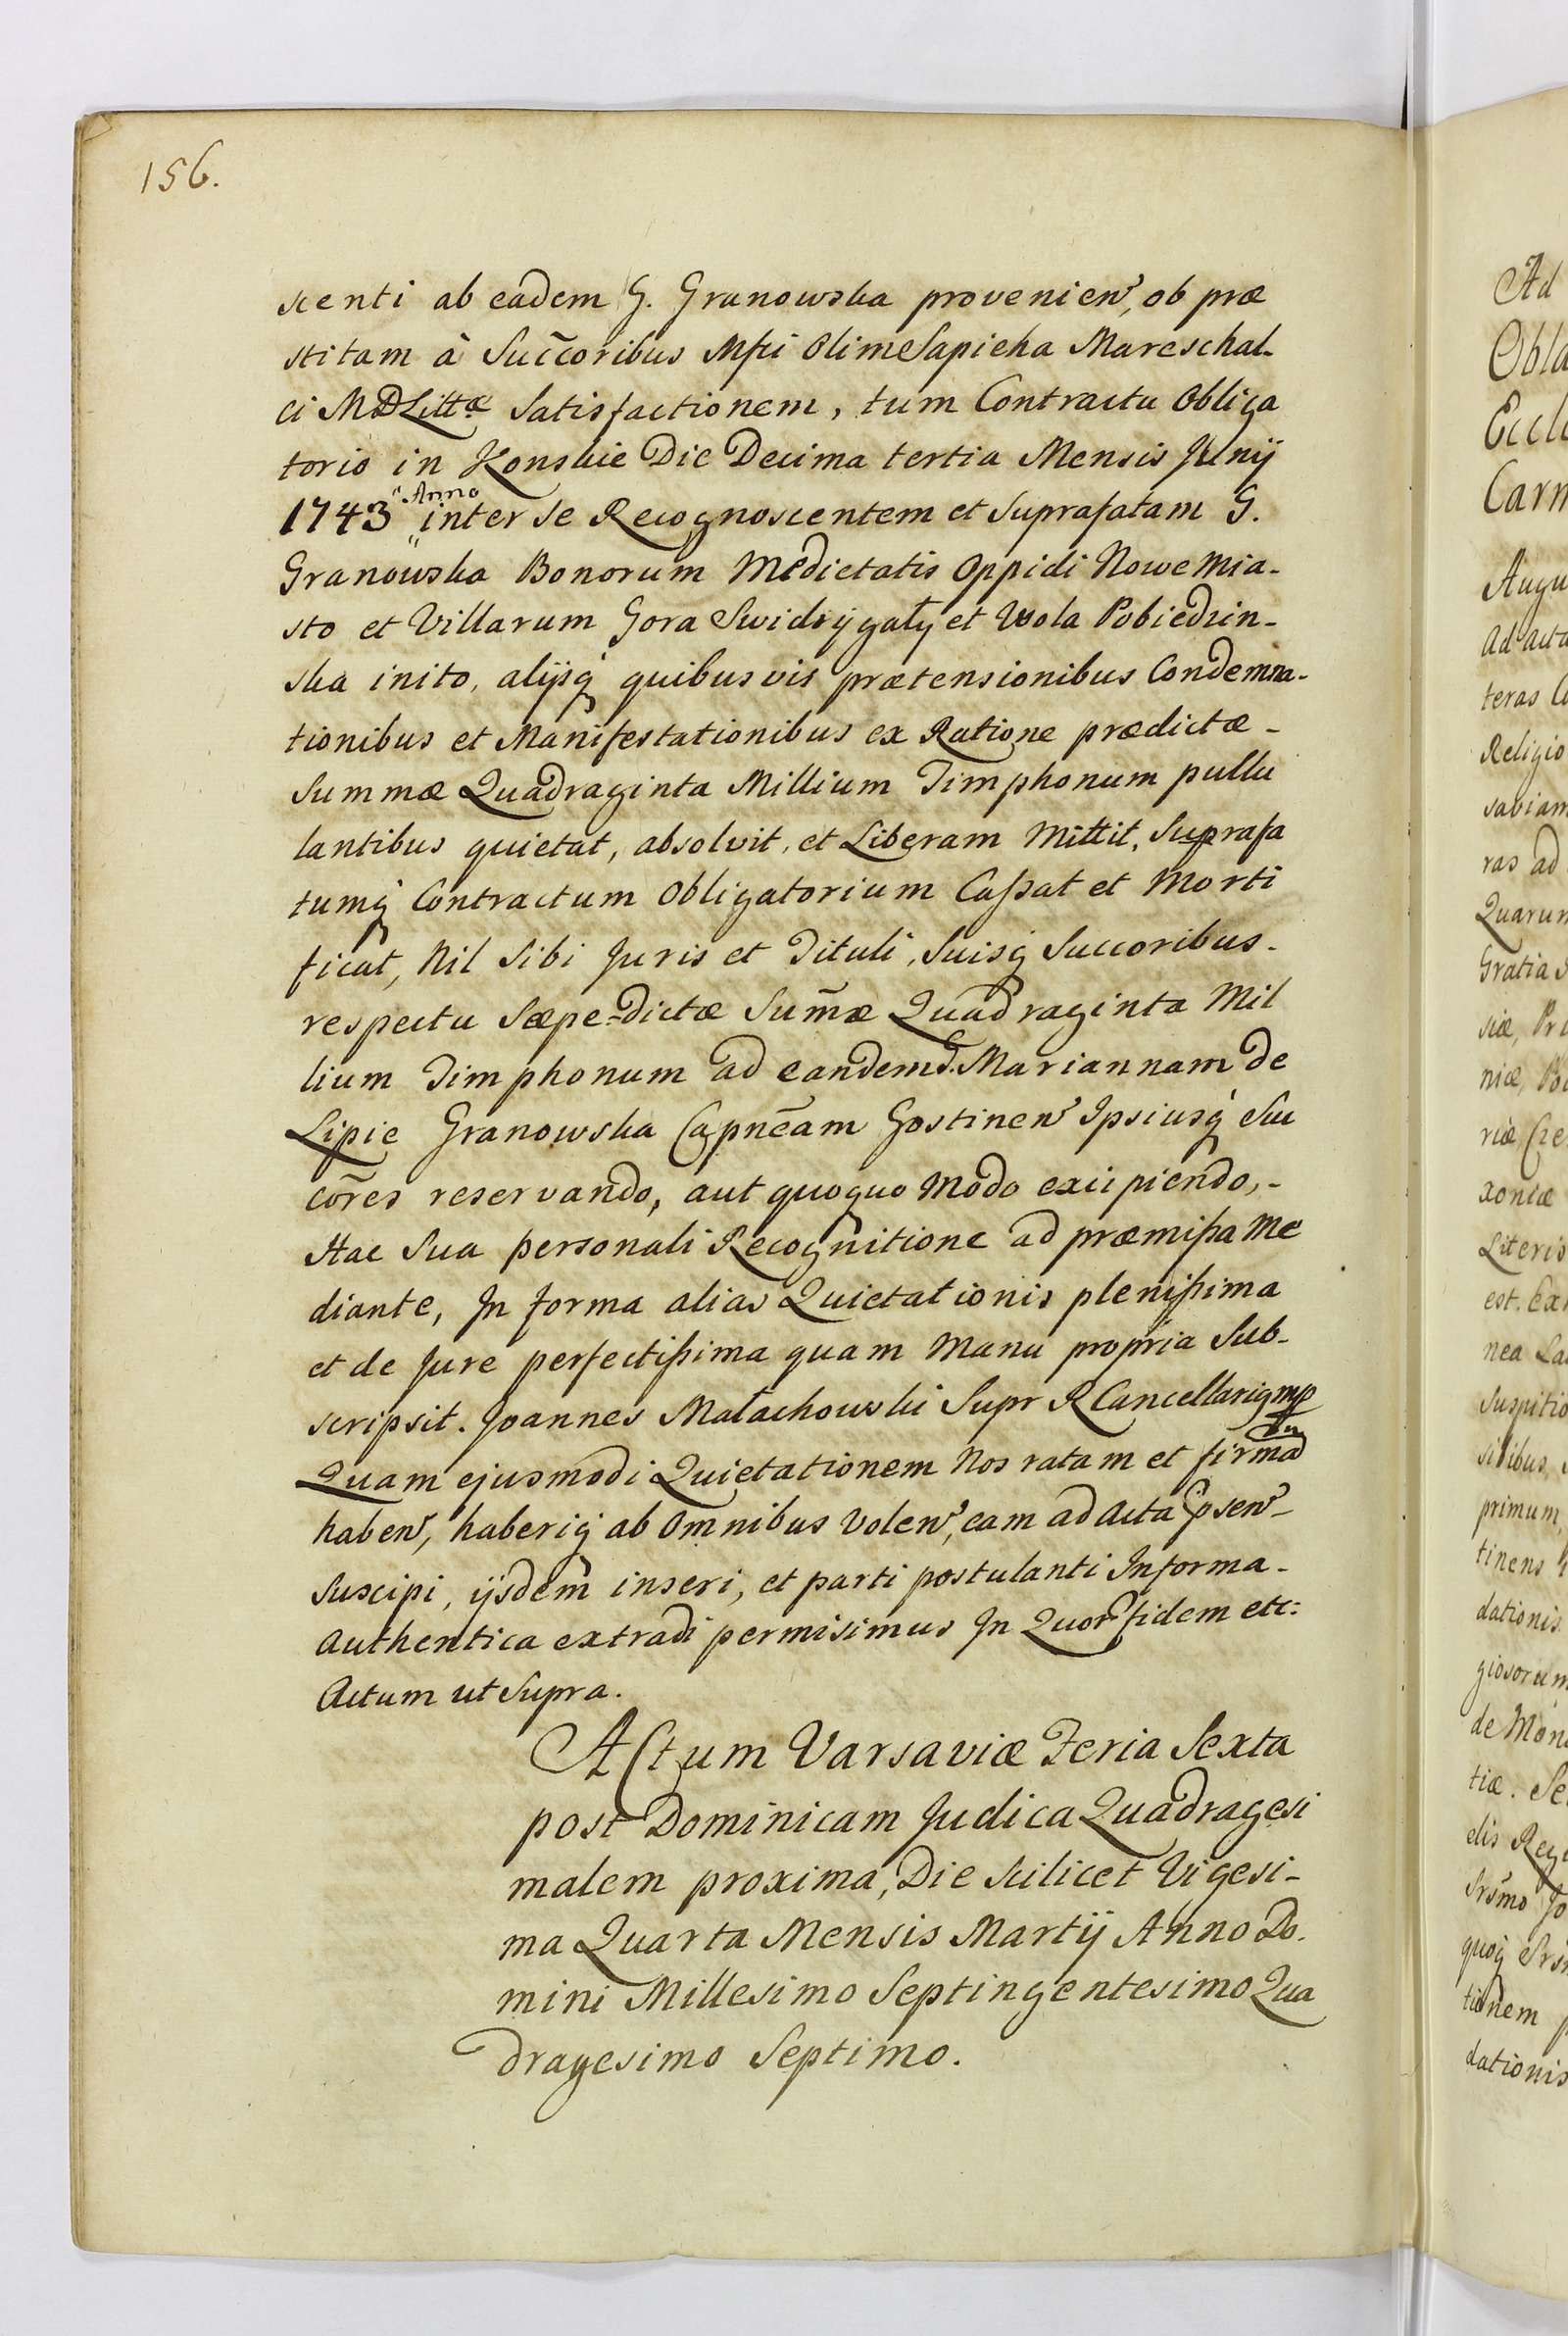 156.
scenti ab eadem G. Granowska provenien, ob præ
stitam à Succoribus Mfci Olim Sapieha Mareschal-
ci MDLittæ Satisfactionem, tum Contractu Obliga
torio in Konskie Die Decima tertia Mensis Junij
1743 Anno inter Se Recognoscentem et Suprafatam G.
Granowska Bonorum Medietatis Oppidi Nowe Mia-
sto et Villarum Gora Swidrygały et Wola Pobiedzin-
ska inito, alijsq quibusvis prætensionibus Condemna-
tionibus et Manifestationibus ex Ratione prædictæ -
Summæ Quadraginta Millium Timphonum pullu
lantibus quietat, absolvit, et Liberam Mittit, Suprafa
tumq Contractum Obligatorium Cassat et Morti
ficat, Nil Sibi Juris et Tituli, Suisq Succoribus -
respectu Sæpe=dictæ Sum̃æ Quadraginta Mil
lium Timphonum ad eandem G. Mariannam de
Lipie Granowska Capnẽam Gostinen Ipsiusq Suc
cores reservando, aut quoquo Modo excipiendo, -
Hac Sua personali Recognitione ad præmissa Me
diante, In forma alias Quietationis plenissima
et de Jure perfectissima quam Manu propria Sub-
scripsit. Joannes Małachowski Supr R Cancellarig mp
Quam ejusmodi Quietationem Nos ratam et firmam
haben, haberiq ab Omnibus Volen, eam ad Acta psen -
Suscipi, ijsdem inseri, et parti postulanti In forma -
Authentica extradi permisimus In Quor fidem etc:
Actum ut Supra.
Actum Varsaviæ Feria Sexta
post Dominicam Judica Quadragesi
malem proxima, Die Scilicet Vigesi-
ma Quarta Mensis Martij Anno Do-
mini Millesimo Septingentesimo Qua
dragesimo Septimo.
Ad
Obla
Eccl
Carm
Augu
Ad acta
teras
Religio
saviam
ras ad
Quarum
Gratia
siæ, Pr
niæ,
riæ
xoniæ
Literis
est. Ex
nea La
Suspitio
sibus
primum,
tinens
dationis
giosorum
de Mon
tiæ. Se
elis Reg
Srsmo Jo
quoq
tionem p
dationis